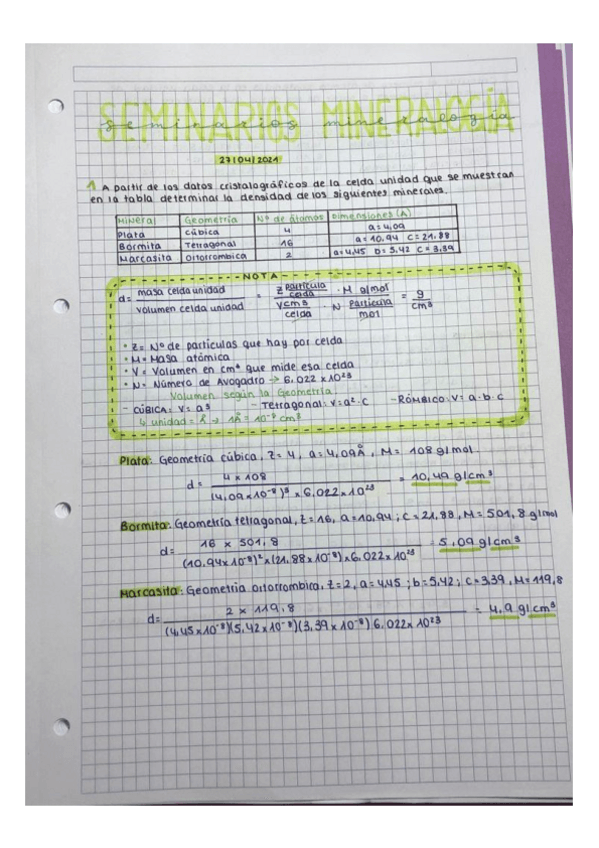 SEMINARIOS MINERALOGÍA
seminarios mineralogía
27/04/2021
1. A partir de los datos cristalográficos de la celda unidad que se muestran
en la tabla determinar la densidad de los siguientes minerales.
Mineral Geometría Nº de átomos Dimensiones (A)
Plata cúbica 4 a=4,09
Bormita Tetragonal 16 a=10,94 c=21,88
Marcasita Ortorrombica 2 a=4,45 b=5,42 c=3,39
NOTA
d= masa celda unidad / volumen celda unidad = Z partícula/celda · M g/mol / V cm³/celda · N partícula/mol = g/cm³
· Z= Nº de partículas que hay por celda
· M= Masa atómica
· V= Volumen en cm³ que mide esa celda
· N= Número de Avogadro → 6.022 x 10²³
Volumen según la Geometría:
- CÚBICA: V= a³ - Tetragonal: V=a²·c - RÓMBICO: V= a·b·c
↳ unidad = Å → 1Å = 10⁻⁸ cm³
Plata: Geometría cúbica, Z=4, a=4,09Å, M= 108 g/mol
d= 4 x 108 / (4,09x10⁻⁸)³ x 6,022x10²³ = 10,49 g/cm³
Bormita: Geometría tetragonal, Z=16, a=10,94; c=21,88, M=501,8 g/mol
d= 16 x 501,8 / (10.94x10⁻⁸)²x(21.88x10⁻⁸)x6.022x10²³ = 5,09 g/cm³
Marcasita: Geometría ortorrombica, Z=2, a=4,45; b=5,42; c=3,39, M=119,8
d= 2 x 119,8 / (4,45x10⁻⁸)(5,42x10⁻⁸)(3,39x10⁻⁸) 6.022x10²³ = 4,9 g/cm³